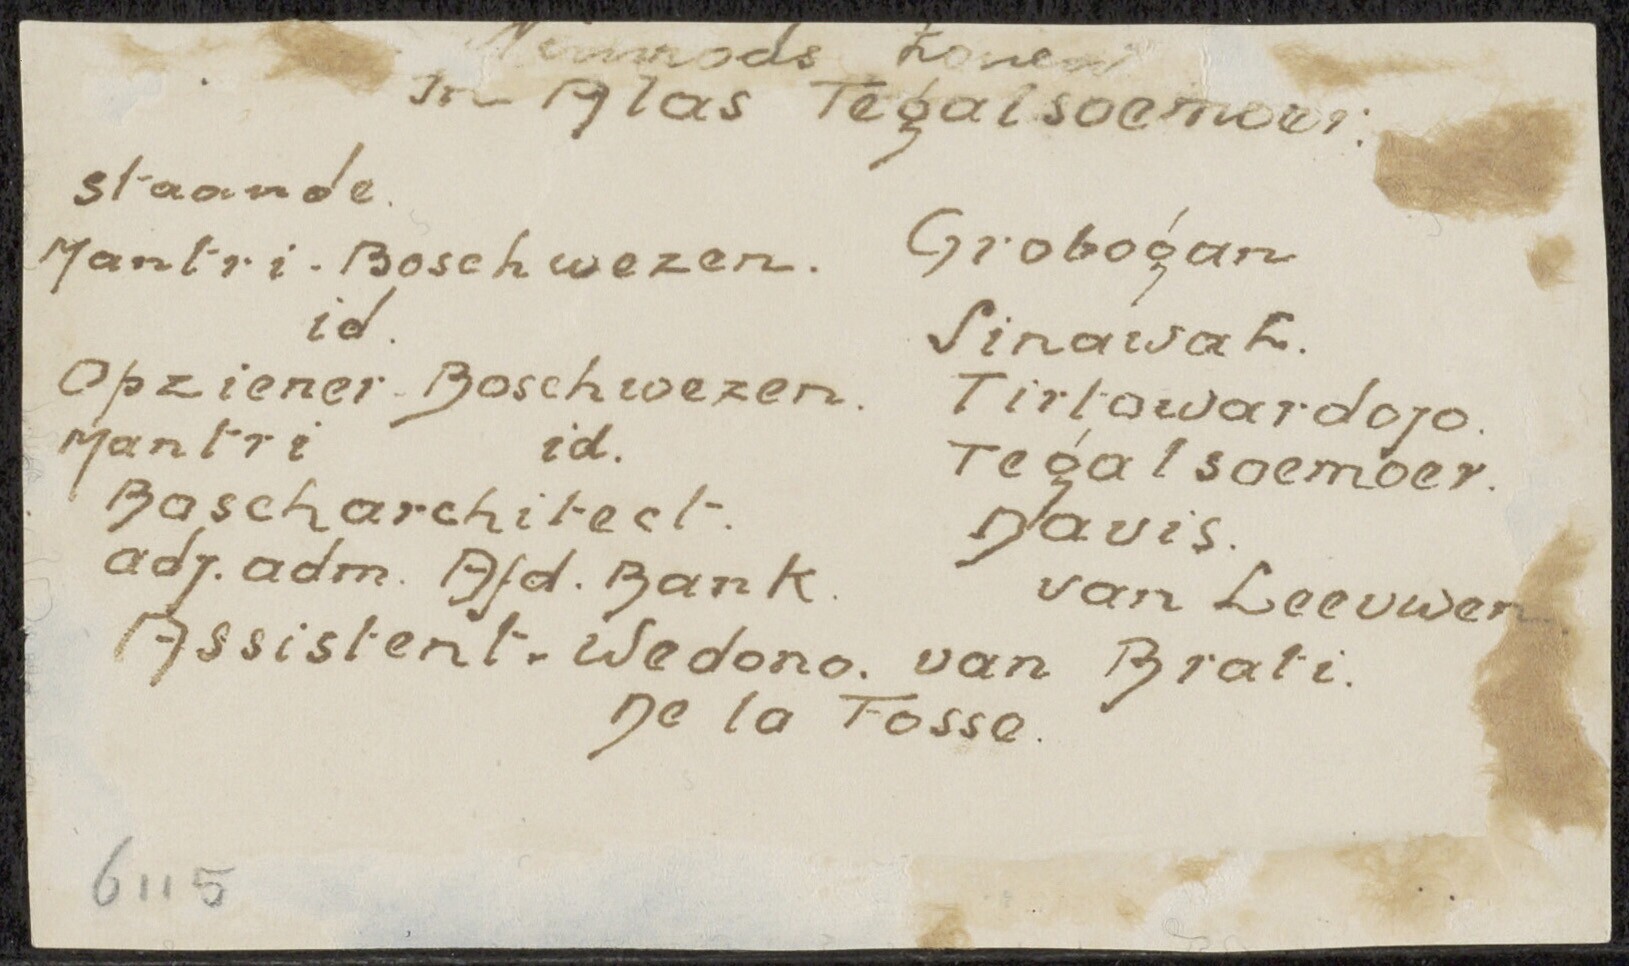 Nimrods Zonen
In Alas Tegalsoemoer:
staande.
Mantri-Boschwezen. Grobogan
id. Sinawah.
Opziener-Boschwezen. Tirtowardojo.
Mantri id. Tegalsoemoer.
Boscharchitect. Davis.
adj. adm. Afd. Bank. van Leeuwen.
Assistent-Wedono. van Brati.
De la Fosse.
6115